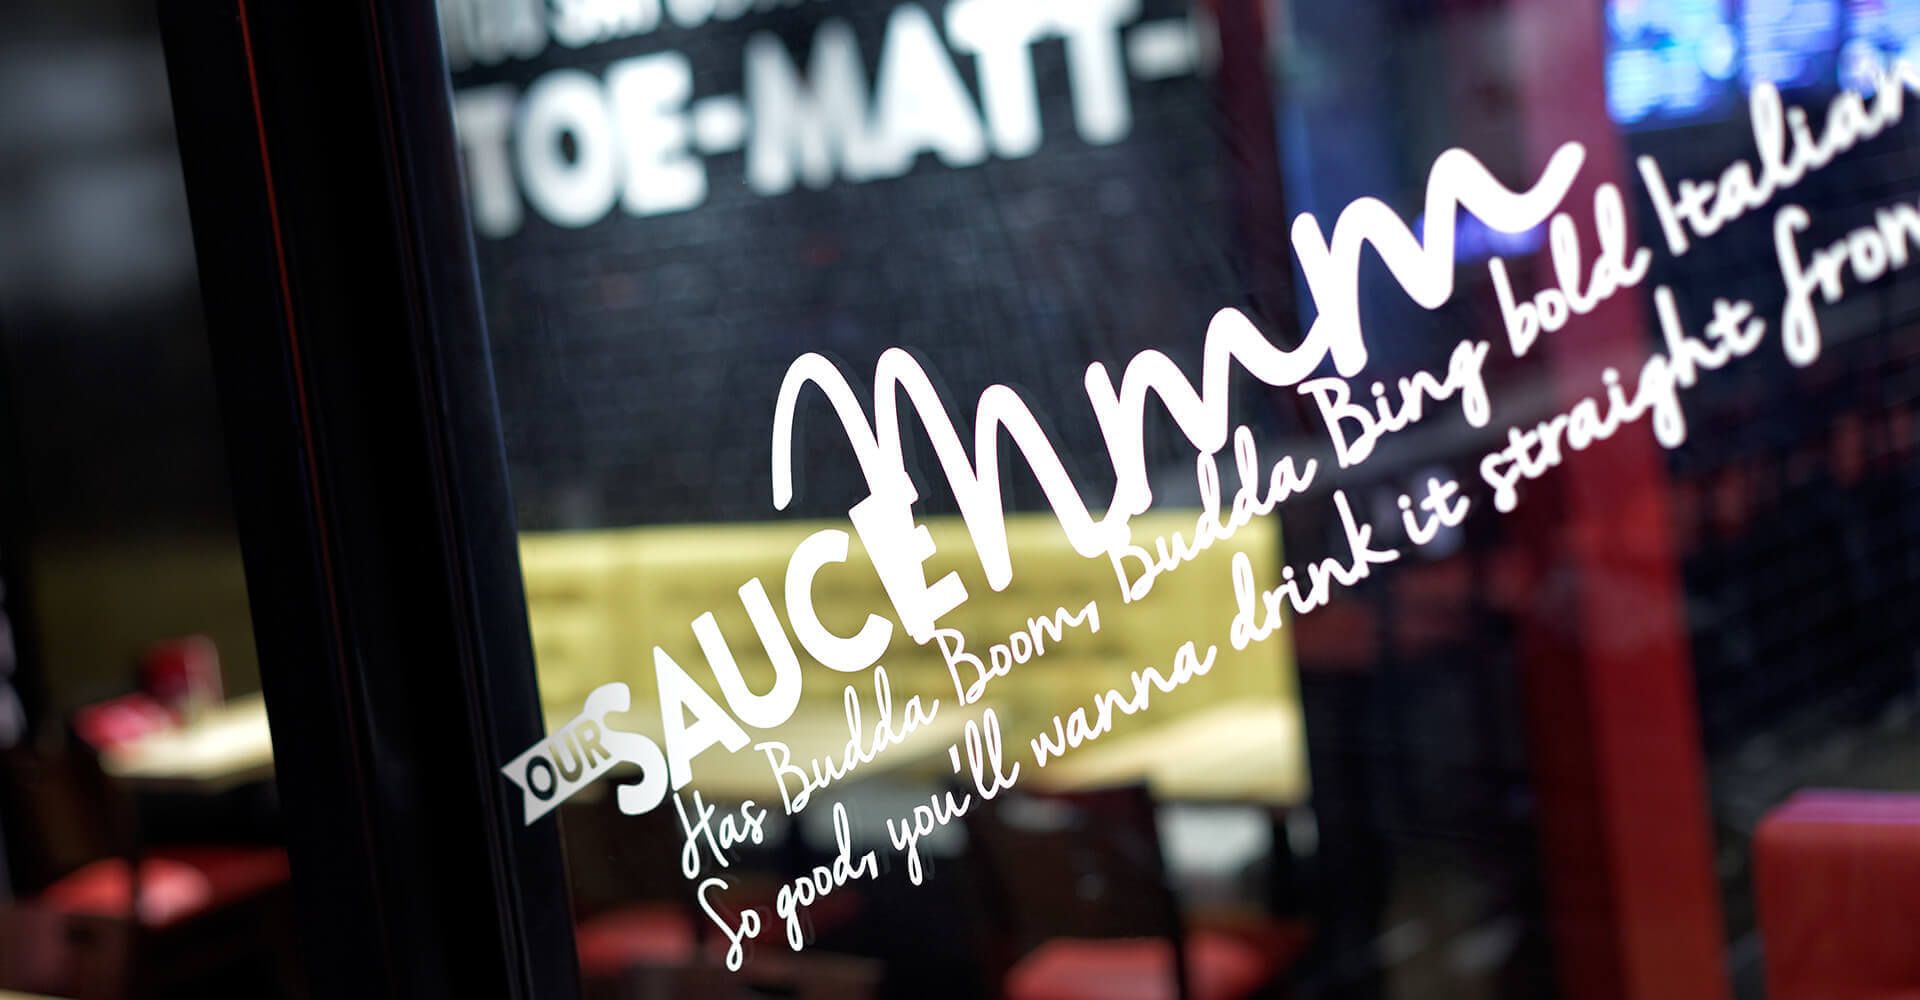 TOE-MATT-
mmmmm
OUR SAUCE
Has Budda Boom, Budda Bing bold Italian
So good, you'll wanna drink it straight